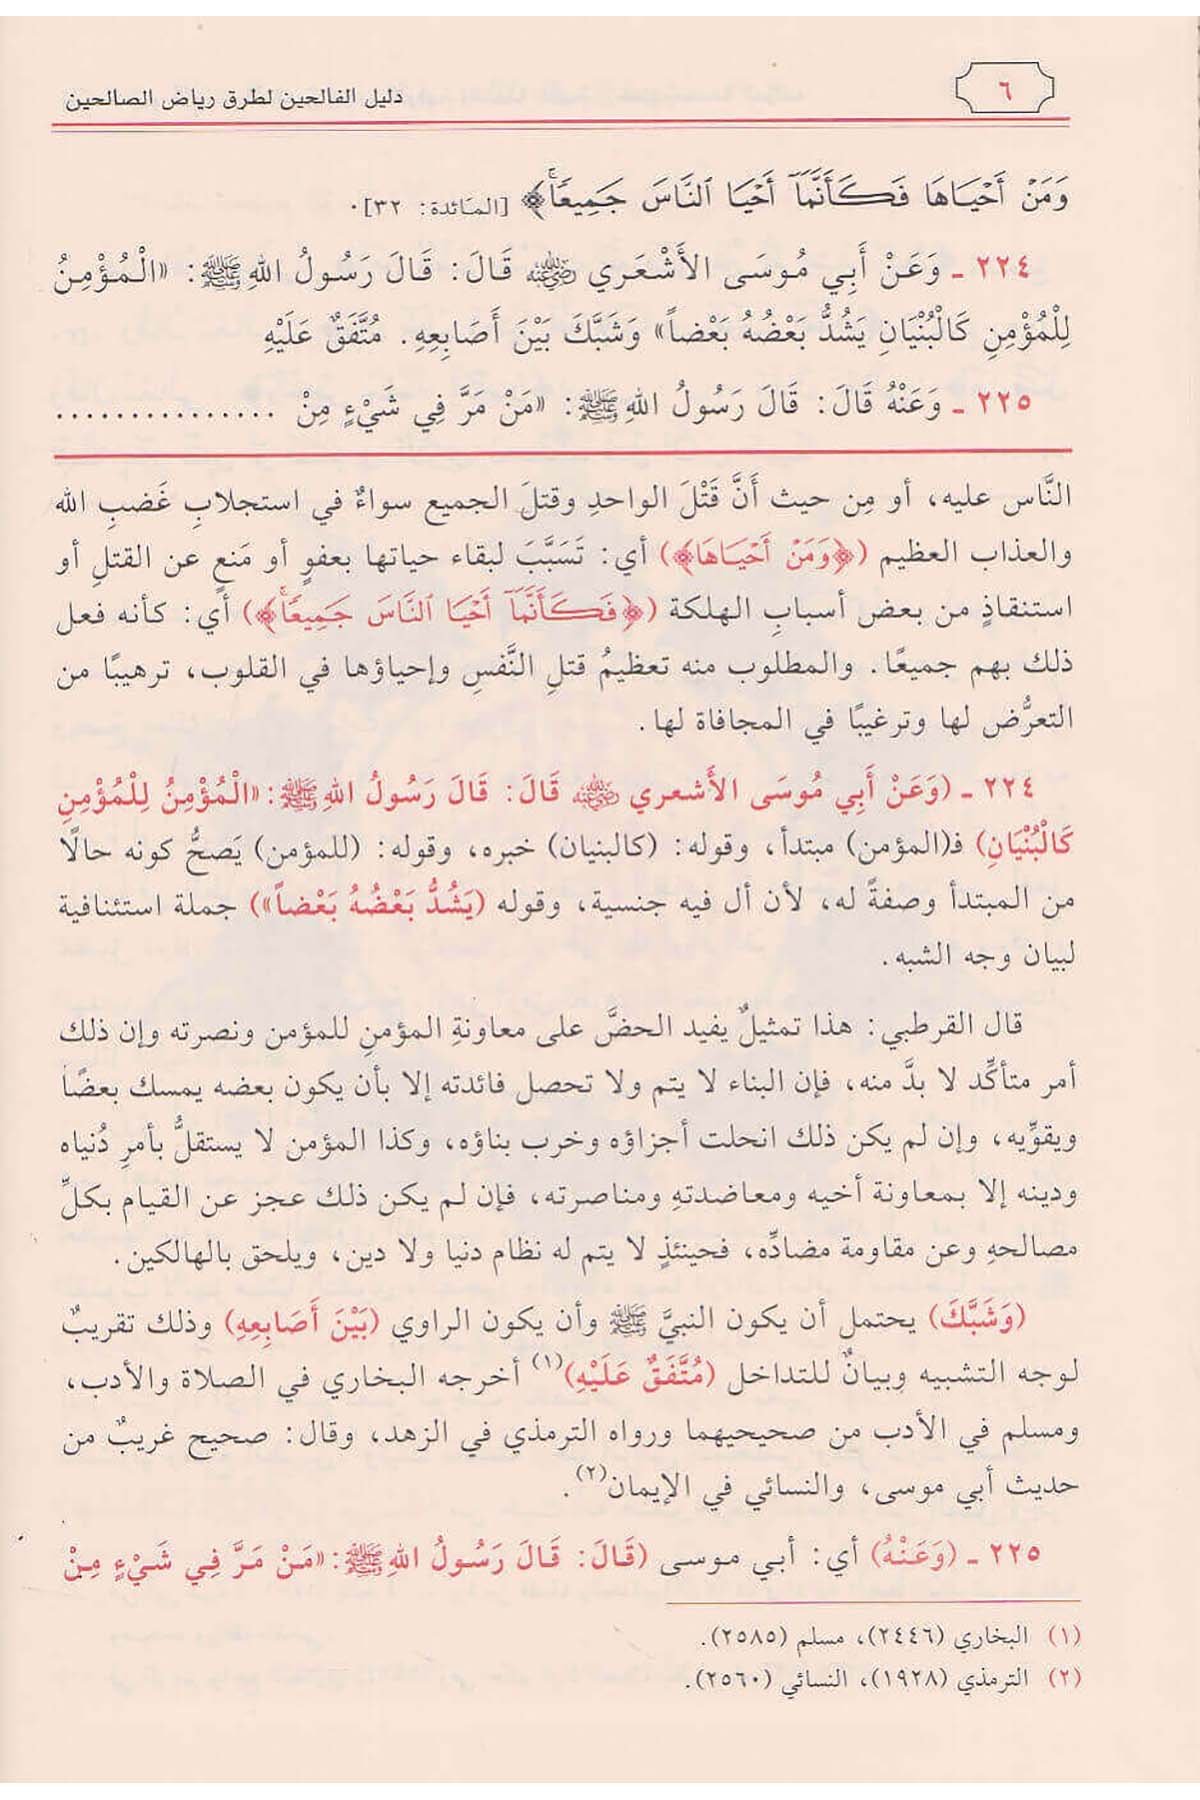 ٦
دليل الفالحين لطرق رياض الصالحين
وَمَنْ أَحْيَاهَا فَكَأَنَّمَآ أَحْيَا ٱلنَّاسَ جَمِيعًاۚ﴾ [المائدة: ٣٢].
٢٢٤ ـ وَعَنْ أَبِي مُوسَى الأَشْعَرِي رضي الله عنه قَالَ: قَالَ رَسُولُ اللهِ ﷺ: «الْمُؤْمِنُ
لِلْمُؤْمِنِ كَالْبُنْيَانِ يَشُدُّ بَعْضُهُ بَعْضاً» وَشَبَّكَ بَيْنَ أَصَابِعِهِ. مُتَّفَقٌ عَلَيْهِ
٢٢٥ ـ وَعَنْهُ قَالَ: قَالَ رَسُولُ اللهِ ﷺ: «مَنْ مَرَّ فِي شَيْءٍ مِنْ ...............
النَّاس عليه، أو مِن حيث أَنَّ قَتْلَ الواحدِ وقتلَ الجميع سواءٌ في استجلابِ غَضبِ الله
والعذاب العظيم (﴿وَمَنْ أَحْيَاهَا﴾) أي: تَسَبَّبَ لبقاء حياتها بعفوٍ أو مَنعٍ عن القتلِ أو
استنقاذٍ من بعض أسبابِ الهلكة (﴿فَكَأَنَّمَآ أَحْيَا ٱلنَّاسَ جَمِيعًاۚ﴾) أي: كأنه فعل
ذلك بهم جميعًا. والمطلوب منه تعظيمُ قتلِ النَّفسِ وإحياؤها في القلوب، ترهيبًا من
التعرُّض لها وترغيبًا في المجافاة لها.
٢٢٤ ـ (وَعَنْ أَبِي مُوسَى الأَشعري رضي الله عنه قَالَ: قَالَ رَسُولُ اللهِ ﷺ: «الْمُؤْمِنُ لِلْمُؤْمِنِ
كَالْبُنْيَانِ) فـ(المؤمن) مبتدأ، وقوله: (كالبنيان) خبره، وقوله: (للمؤمن) يَصحُّ كونه حالًا
من المبتدأ وصفةً له، لأن أل فيه جنسية، وقوله (يَشُدُّ بَعْضُهُ بَعْضاً») جملة استئنافية
لبيان وجه الشبه.
قال القرطبي: هذا تمثيلٌ يفيد الحضَّ على معاونةِ المؤمنِ للمؤمن ونصرته وإن ذلك
أمر متأكِّد لا بدَّ منه، فإن البناء لا يتم ولا تحصل فائدته إلا بأن يكون بعضه يمسك بعضًا
ويقوِّيه، وإن لم يكن ذلك انحلت أجزاؤه وخرب بناؤه، وكذا المؤمن لا يستقلُّ بأمرِ دُنياه
ودينه إلا بمعاونة أخيه ومعاضدتهِ ومناصرته، فإن لم يكن ذلك عجز عن القيام بكلِّ
مصالحهِ وعن مقاومة مضادِّه، فحينئذٍ لا يتم له نظام دنيا ولا دين، ويلحق بالهالكين.
(وَشَبَّكَ) يحتمل أن يكون النبيَّ ﷺ وأن يكون الراوي (بَيْنَ أَصَابِعِهِ) وذلك تقريبٌ
لوجه التشبيه وبيانٌ للتداخل (مُتَّفَقٌ عَلَيْهِ)(١) أخرجه البخاري في الصلاة والأدب،
ومسلم في الأدب من صحيحيهما ورواه الترمذي في الزهد، وقال: صحيح غريبٌ من
حديث أبي موسى، والنسائي في الإيمان(٢).
٢٢٥ ـ (وَعَنْهُ) أي: أبي موسى (قَالَ: قَالَ رَسُولُ اللهِ ﷺ: «مَنْ مَرَّ فِي شَيْءٍ مِنْ
(١) البخاري (٢٤٤٦)، مسلم (٢٥٨٥).
(٢) الترمذي (١٩٢٨)، النسائي (٢٥٦٠).